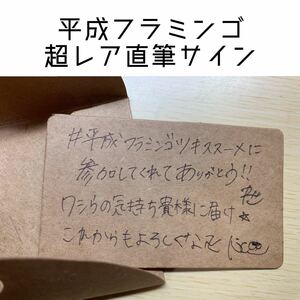 平成フラミンゴ
超レア直筆サイン
#平成フラミンゴツキススーメに
参加してくれてありがとう!!
ワシらの気持ち貴様に届け☆
これからもよろしくな